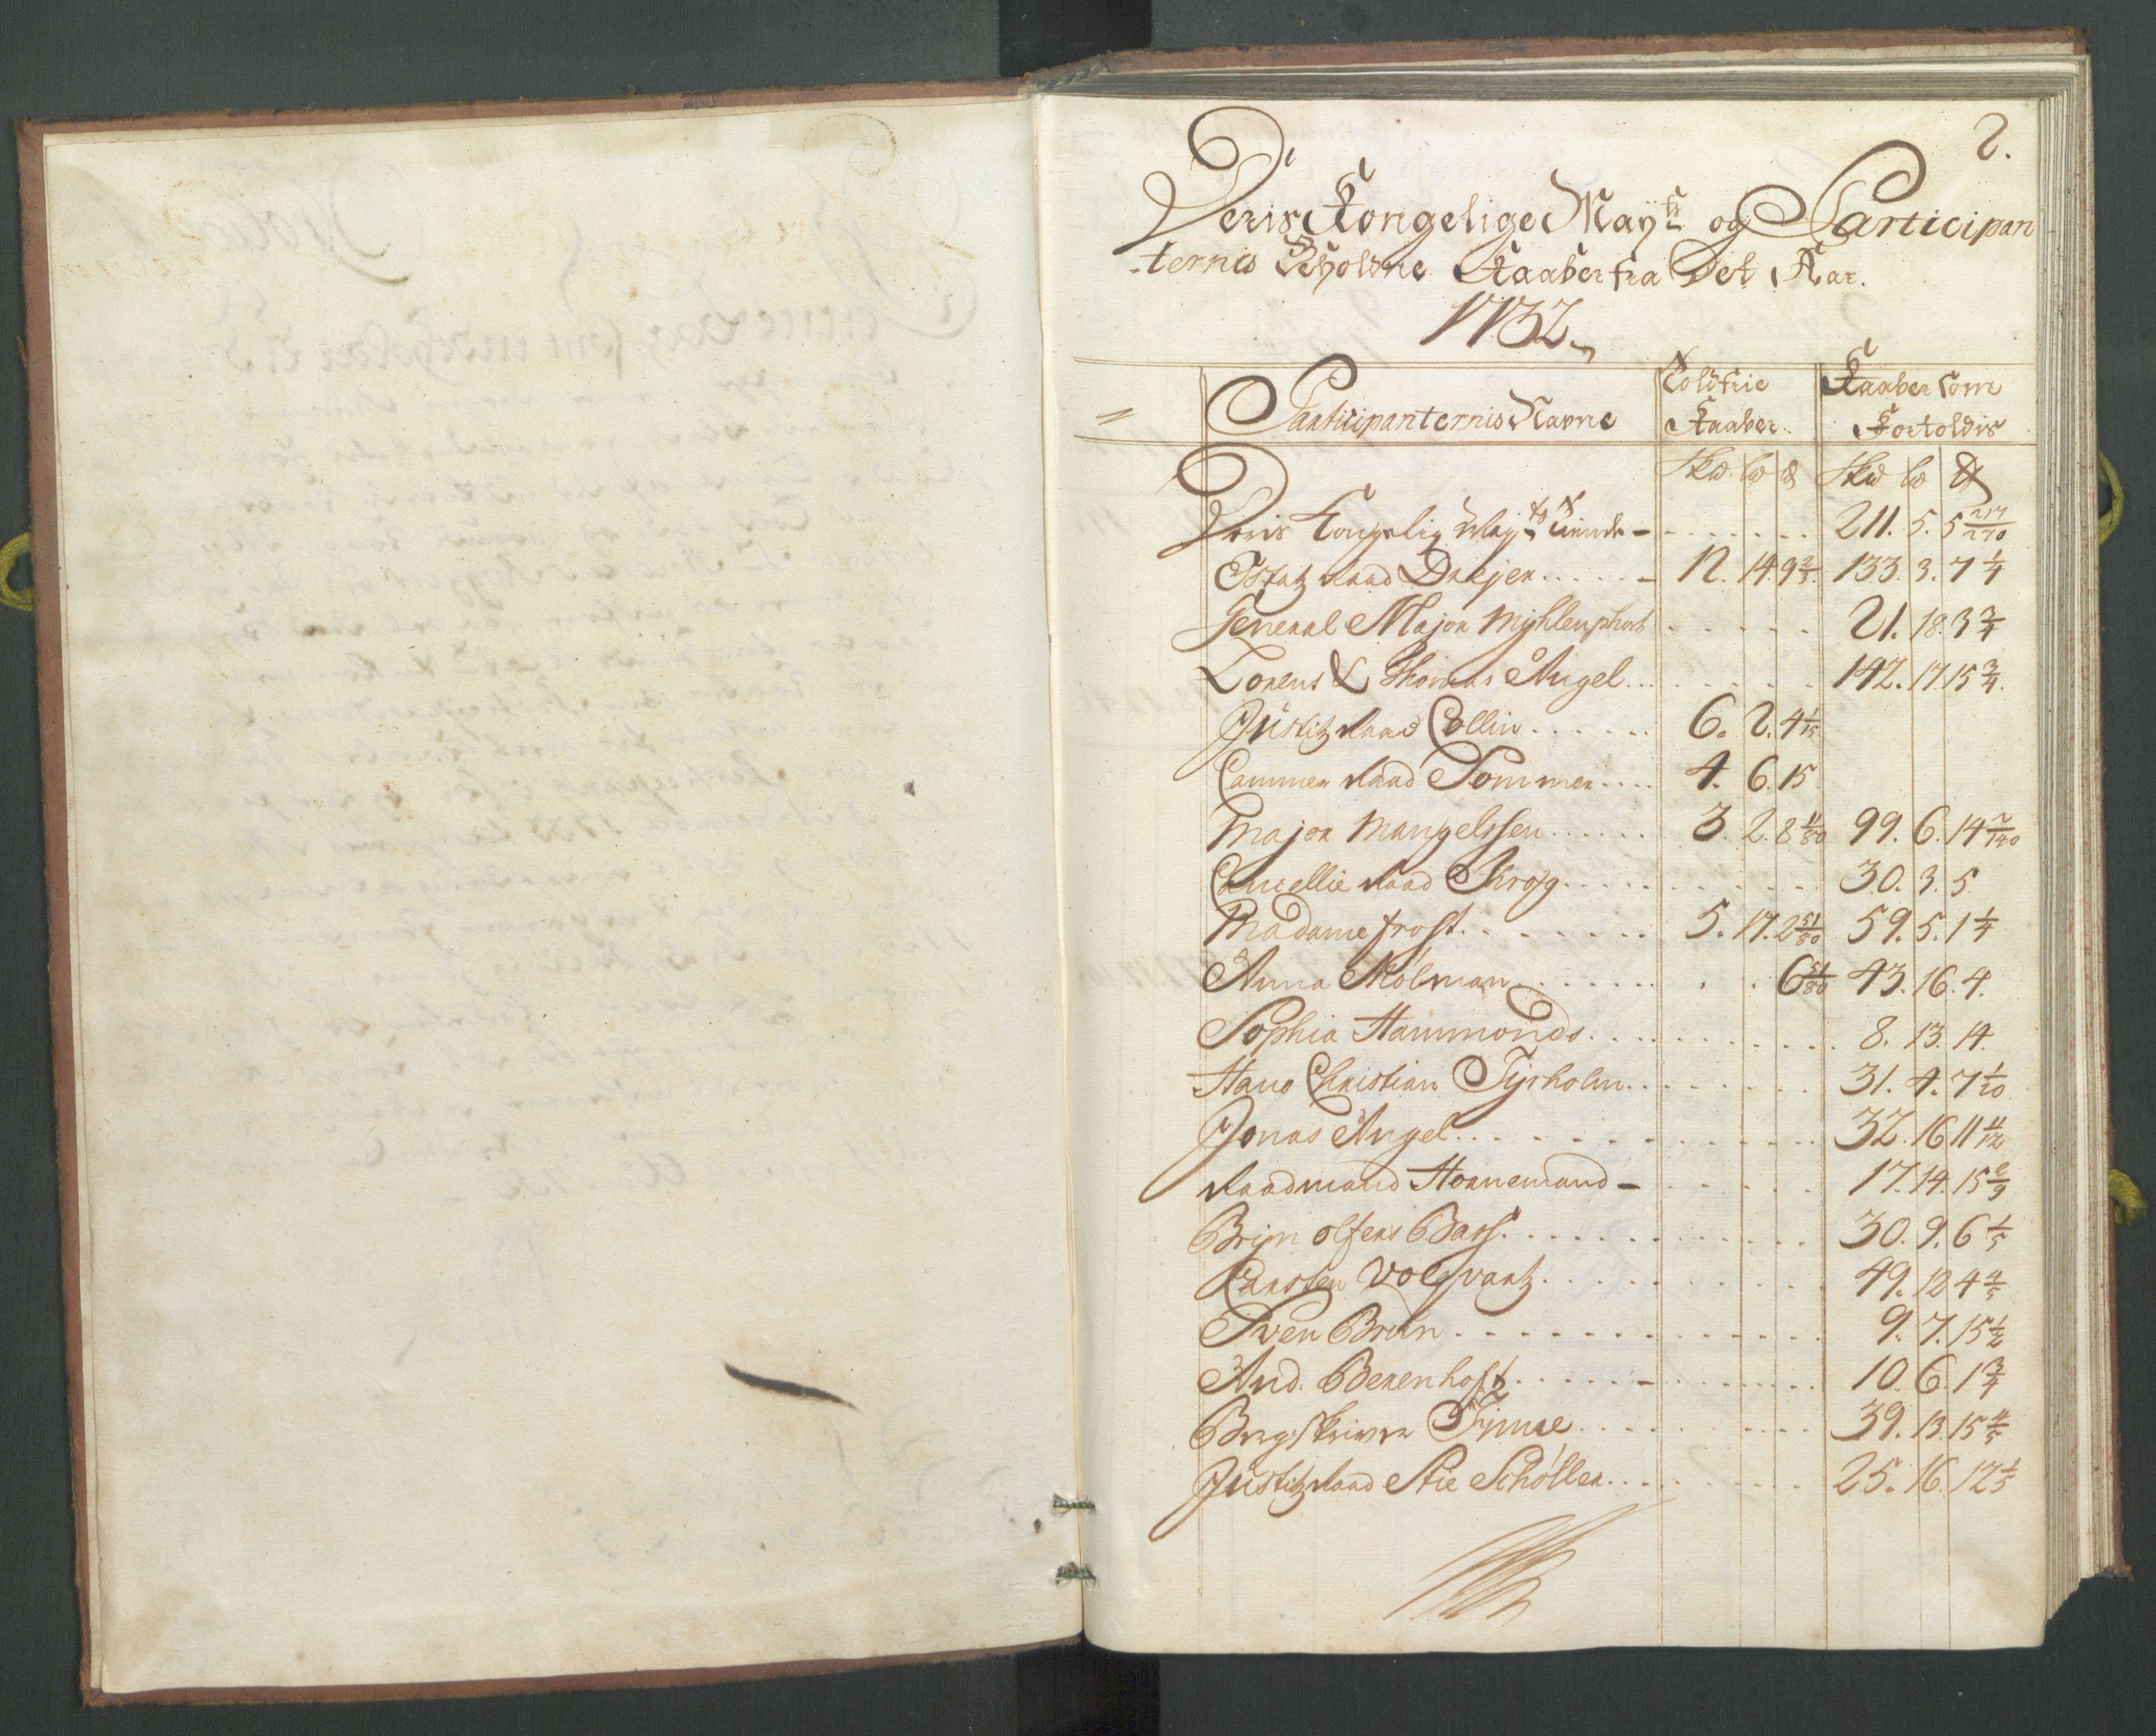 2.
Deris Kongelige Mayts og Participan
-ternis Beholdne Kaaber fra Det Aar.
1732.
Participanternis Navne Toldfrie Kaaber. Kaaber som Fortoldis
Skd. lb ℔ Skd lb ℔
Deris Kongelig Mayts Tiende - 211. 5. 5 217/270
Etatz Raad Dreyer..... 12. 14. 9 2/3. 133. 3. 7 1/4
General Major Myhlenphort 21. 18. 3 3/4
Lorens & Thomas Angel... 142. 17. 15 3/4.
Justitz Raad Collin...... 6. 2. 4 1/15
Cammer Raad Sommer.... 4. 6. 15
Major Mangelssen...... 3. 2. 8 11/80 99. 6. 14 7/140
Cancellie Raad Krog...... 30. 3. 5
Madame frost....... 5. 17. 2 51/80 59. 5. 1 1/4
Anna Mölman....... 6 51/80 43. 16. 4.
Sophia Hammonds.... 8. 13. 14.
Hans Christian Tyrholm.... 31. 4. 7 1/20
Jonas Angel.... 32. 16 11 11/12
Raadmand Hornemand - 17. 14. 15 2/9
Bryn olfens Bars.... 30. 9. 6 1/5
Carsten Volqvartz.... 49. 12 4 4/5
Sven Brun.... 9. 7. 15 1/2
And. Berenhoft.... 10. 6. 1 3/4
Bergskriver 39. 13. 15 4/5
Justitz Raad Stie Schöller... 25. 16. 12 1/5